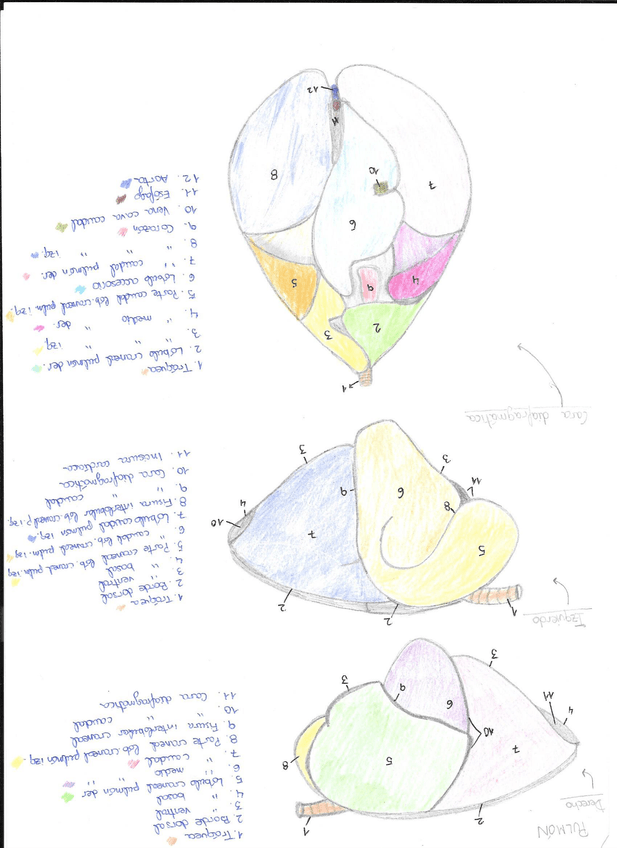 PULMÓN
Derecho
1. Tráquea
2. Borde dorsal
3. " ventral
4. " basal
5. Lóbulo craneal pulmón der
6. " medio " "
7. " caudal
8. Parte craneal lob craneal pulmón izq.
9. Fisura interlobular craneal
10. " " caudal
11. Cara diafragmática
1
2
3
3
4
5
6
7
8
9
10
11
Izquierdo
1. Tráquea
2. Borde dorsal
3. " ventral
4. " basal
5. Parte craneal lob. craneal pulm. izq
6. " caudal lob. craneal pulm. izq
7. Lóbulo caudal pulmón izq.
8. Fisura interlobular lob craneal p. izq
9. " " caudal
10. Cara diafragmática
11. Incisura cardiaca
1
2
2
3
3
4
5
6
7
8
9
10
11
Cara diafragmática
1. Tráquea
2. Lóbulo craneal pulmón der.
3. " " " izq
4. " medio " der.
5. Parte caudal lob craneal pulm izq.
6. Lóbulo accesorio
7. " caudal pulmón der.
8. " " " izq
9. Corazón
10. Vena cava caudal
11. Esófago
12. Aorta
1
2
3
4
5
6
7
8
9
10
11
12